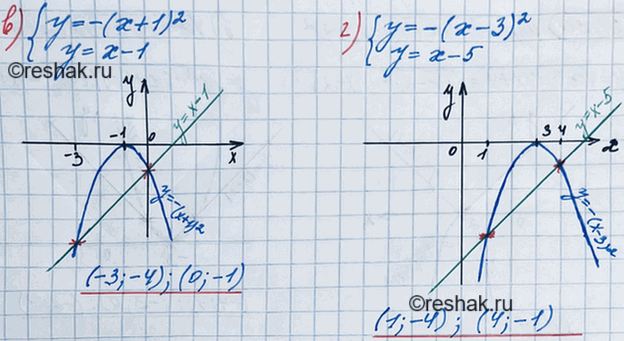 в) { y = -(x+1)²
y = x-1
©reshak.ru
y
-3
-1
0
x
y=x-1
y=-(x+1)²
(-3;-4); (0;-1)
г) { y = -(x-3)²
y = x-5
y
0
1
3
4
x
y=x-5
y=-(x-3)²
©reshak.ru
(1;-4); (4;-1)